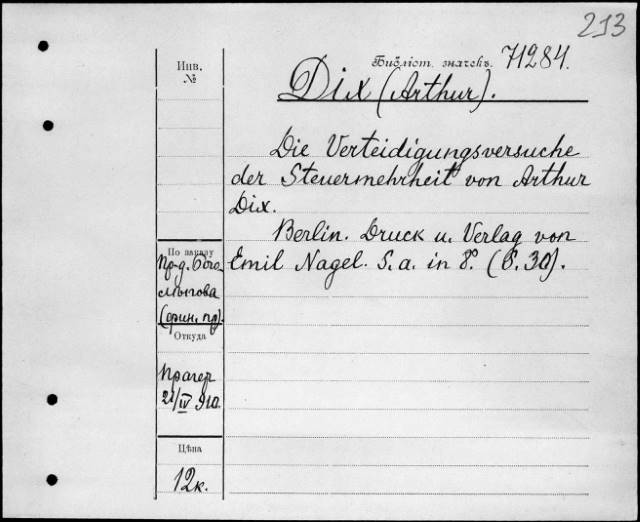 213
Инв.
№
Библіот. значекъ. 71284.
Dix (Arthur).
Die Verteidigungsversuche
der Steuermehrheit von Arthur
Dix.
Berlin. Druck u. Verlag von
Emil Nagel. S. a. in 8º. (S. 30).
По заказу
Пр-д. Бого
лѣпова
(фин. пр).
Откуда
Прагер
21/IV 910.
Цѣна
12к.